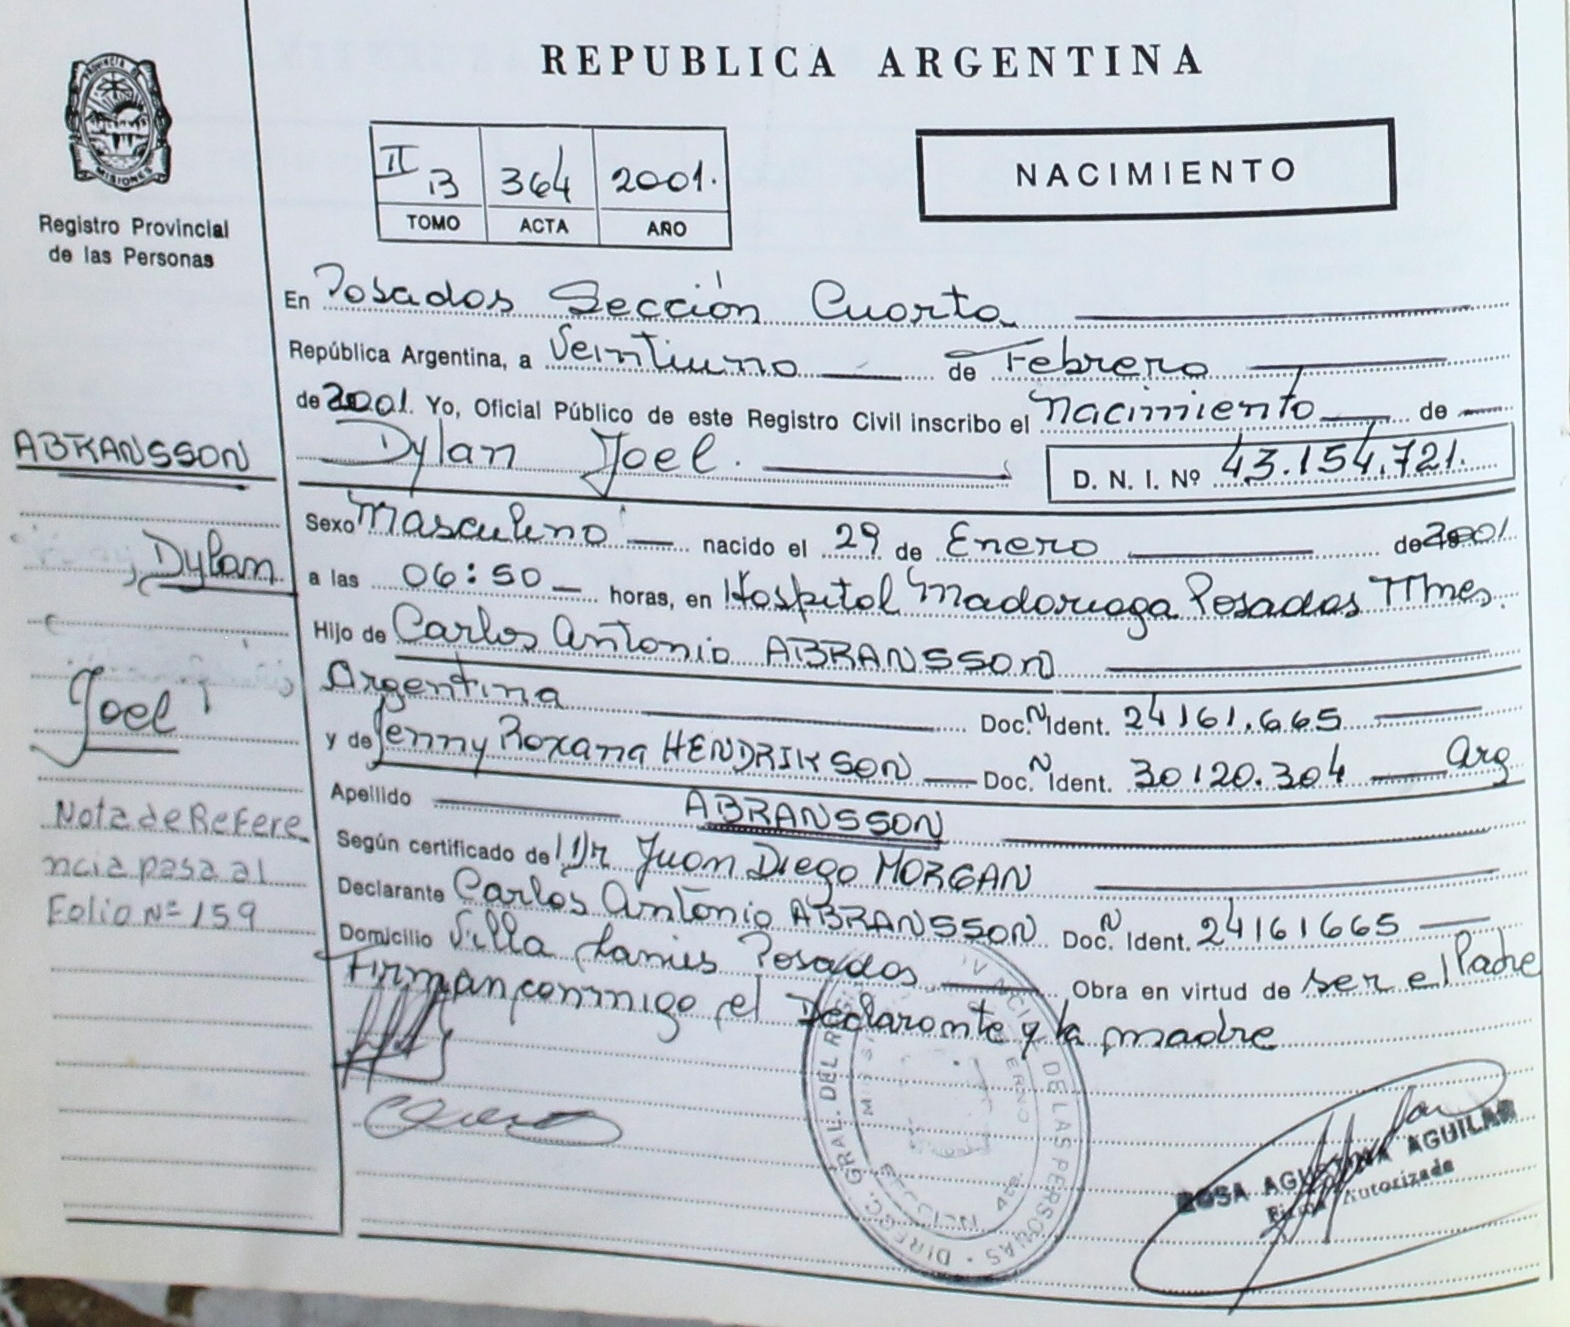 REPUBLICA ARGENTINA
PROVINCIA DE MISIONES
Registro Provincial
de las Personas
II B 364 2001.
TOMO ACTA AÑO
NACIMIENTO
En Posadas Sección Cuarta
República Argentina, a Veintiuno de Febrero
de 2001. Yo, Oficial Público de este Registro Civil inscribo el Nacimiento de
Dylan Joel. D. N. I. Nº 43.154.721.
Sexo Masculino nacido el 29 de Enero de 2001
a las 06:50 horas, en Hospital Madariaga Posadas Mnes.
Hijo de Carlos Antonio ABRANSSON
Argentina Doc. N Ident. 24161.665
y de Jenny Roxana HENDRIKSON Doc. N Ident. 30120.304 Arg
Apellido ABRANSSON
Según certificado de Dr Juan Diego MORGAN
Declarante Carlos Antonio ABRANSSON Doc. N Ident. 24161665
Domicilio Villa Posadas Obra en virtud de ser el Padre
Firman conmigo el Declarante y la madre
ABRANSSON
Dylan
Joel
Nota de Refere
ncia pasa al
Folio Nº 159
DIRECC. GRAL. DEL DE LAS PERSONAS
ROSA AGUSTINA AGUILAR
Firma Autorizada